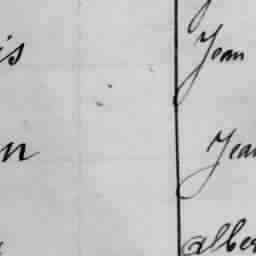 is Jean
n Jean
Alber